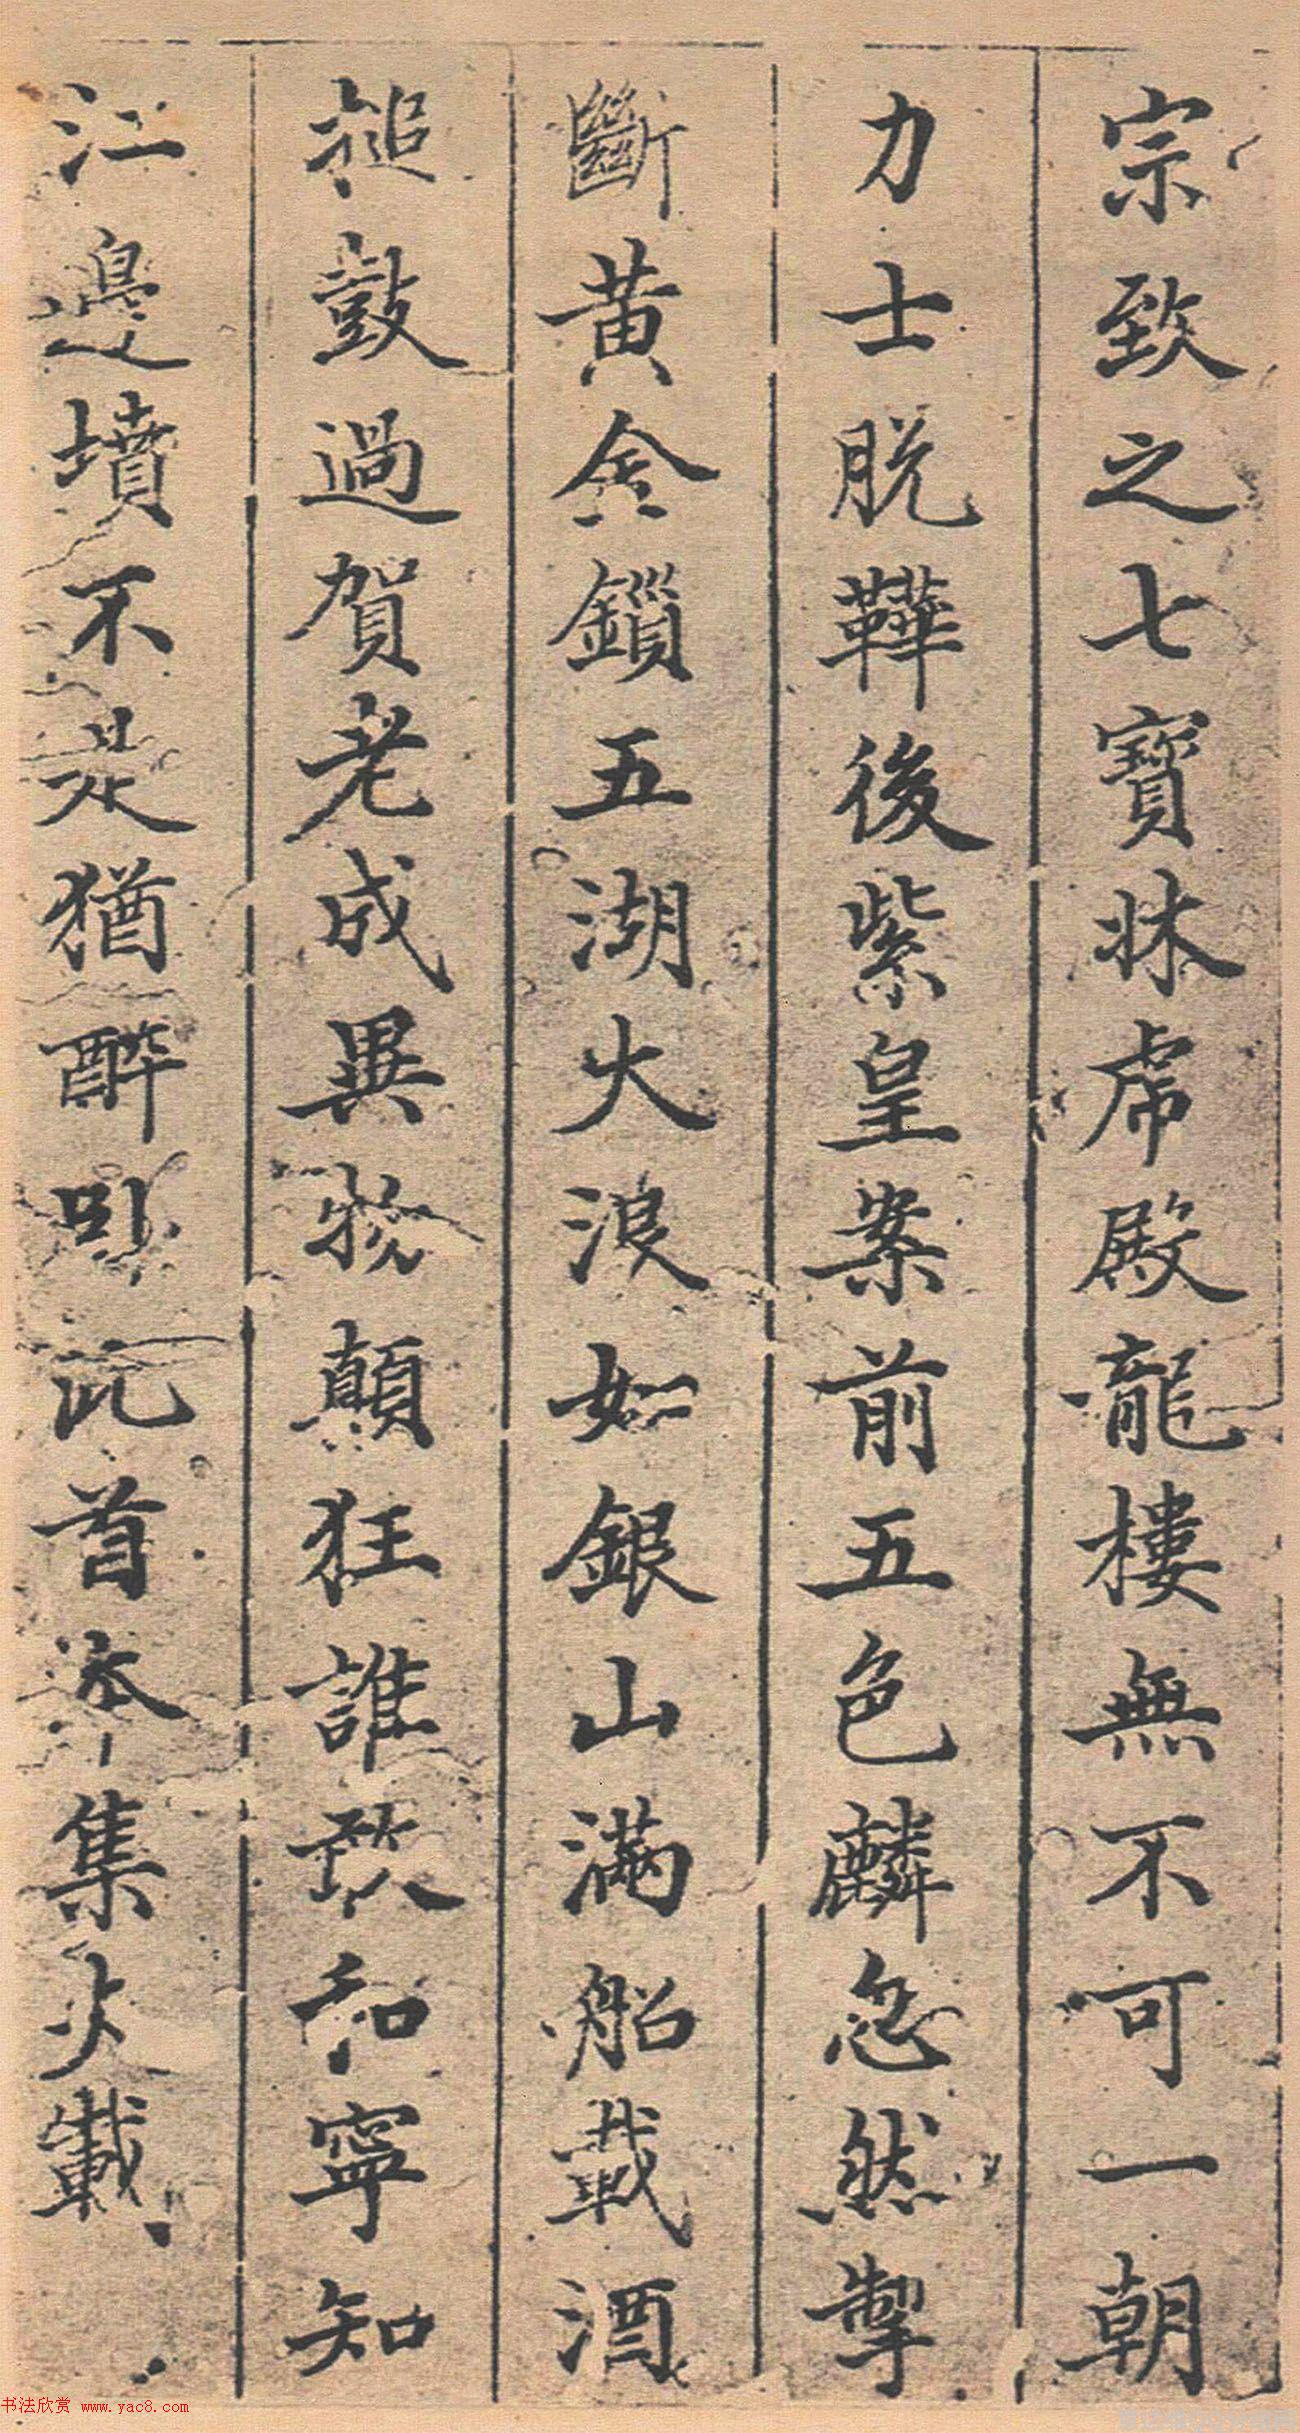 宗致之七寶牀虎殿龍樓無不可一朝
力士脫鞾後紫皇案前五色麟忽然掣
斷黃金鎖五湖大浪如銀山滿船載酒
搥鼓過賀老成異物顛狂誰敢和寧知
江邊墳不是猶醉臥此首本集失載
书法欣赏 www.yac8.com